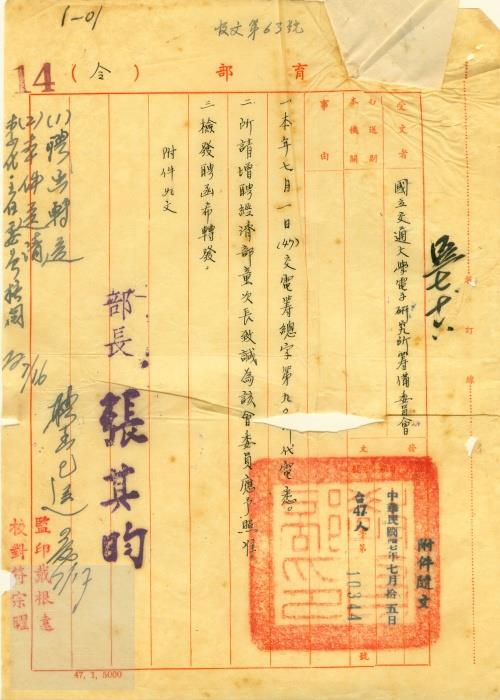 1-01
收文第63號
14
育部
(令)
受文者
國立交通大學電子研究所籌備委員會
右送別
本機關
事由
附件隨文
中華民國肆柒年七月拾五日
台47人
字第
10344
號
一本年七月一日(47)交電籌總字第九〇 代電悉。
二所請增聘經濟部童次長致誠為該會委員應予照准
三檢發聘函希轉發。
附件如文
部長
張其昀
(1)聘函轉送
(2)本件送請
7/16
聘函已送
7/17
監印戴根遠
校對符宗曜
裝訂線
47, 1, 5000